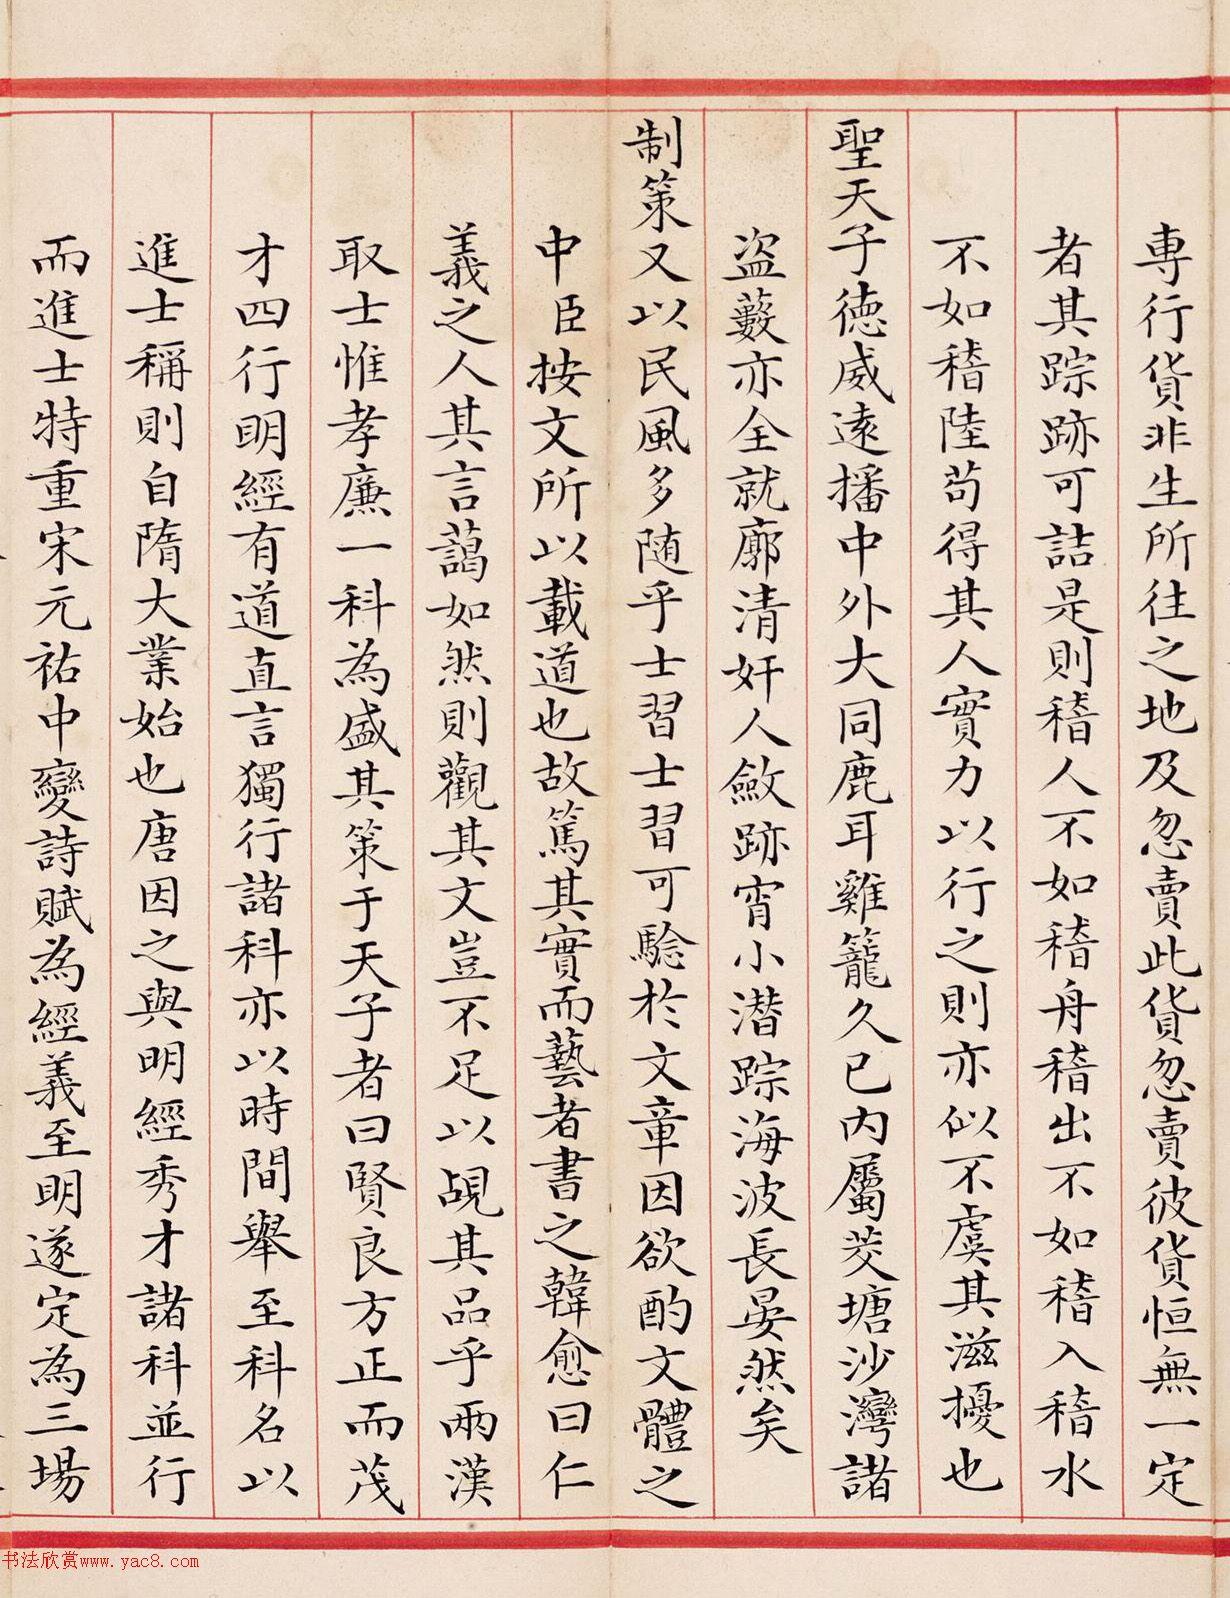 專行貨非生所往之地及忽賣此貨忽賣彼貨恒無一定
者其踪跡可詰是則稽人不如稽舟稽出不如稽入稽水
不如稽陸苟得其人實力以行之則亦似不虞其滋擾也
聖天子德威遠播中外大同鹿耳雞籠久已內屬茭塘沙灣諸
盜藪亦全就廓清奸人斂跡宵小潛踪海波長晏然矣
制策又以民風多随乎士習士習可驗於文章因欲酌文體之
中臣按文所以載道也故篤其實而藝者書之韓愈曰仁
義之人其言藹如然則觀其文豈不足以覘其品乎兩漢
取士惟孝廉一科為盛其策于天子者曰賢良方正而茂
才四行明經有道直言獨行諸科亦以時間舉至科名以
進士稱則自隋大業始也唐因之與明經秀才諸科並行
而進士特重宋元祐中變詩賦為經義至明遂定為三場
书法欣赏www.yac8.com